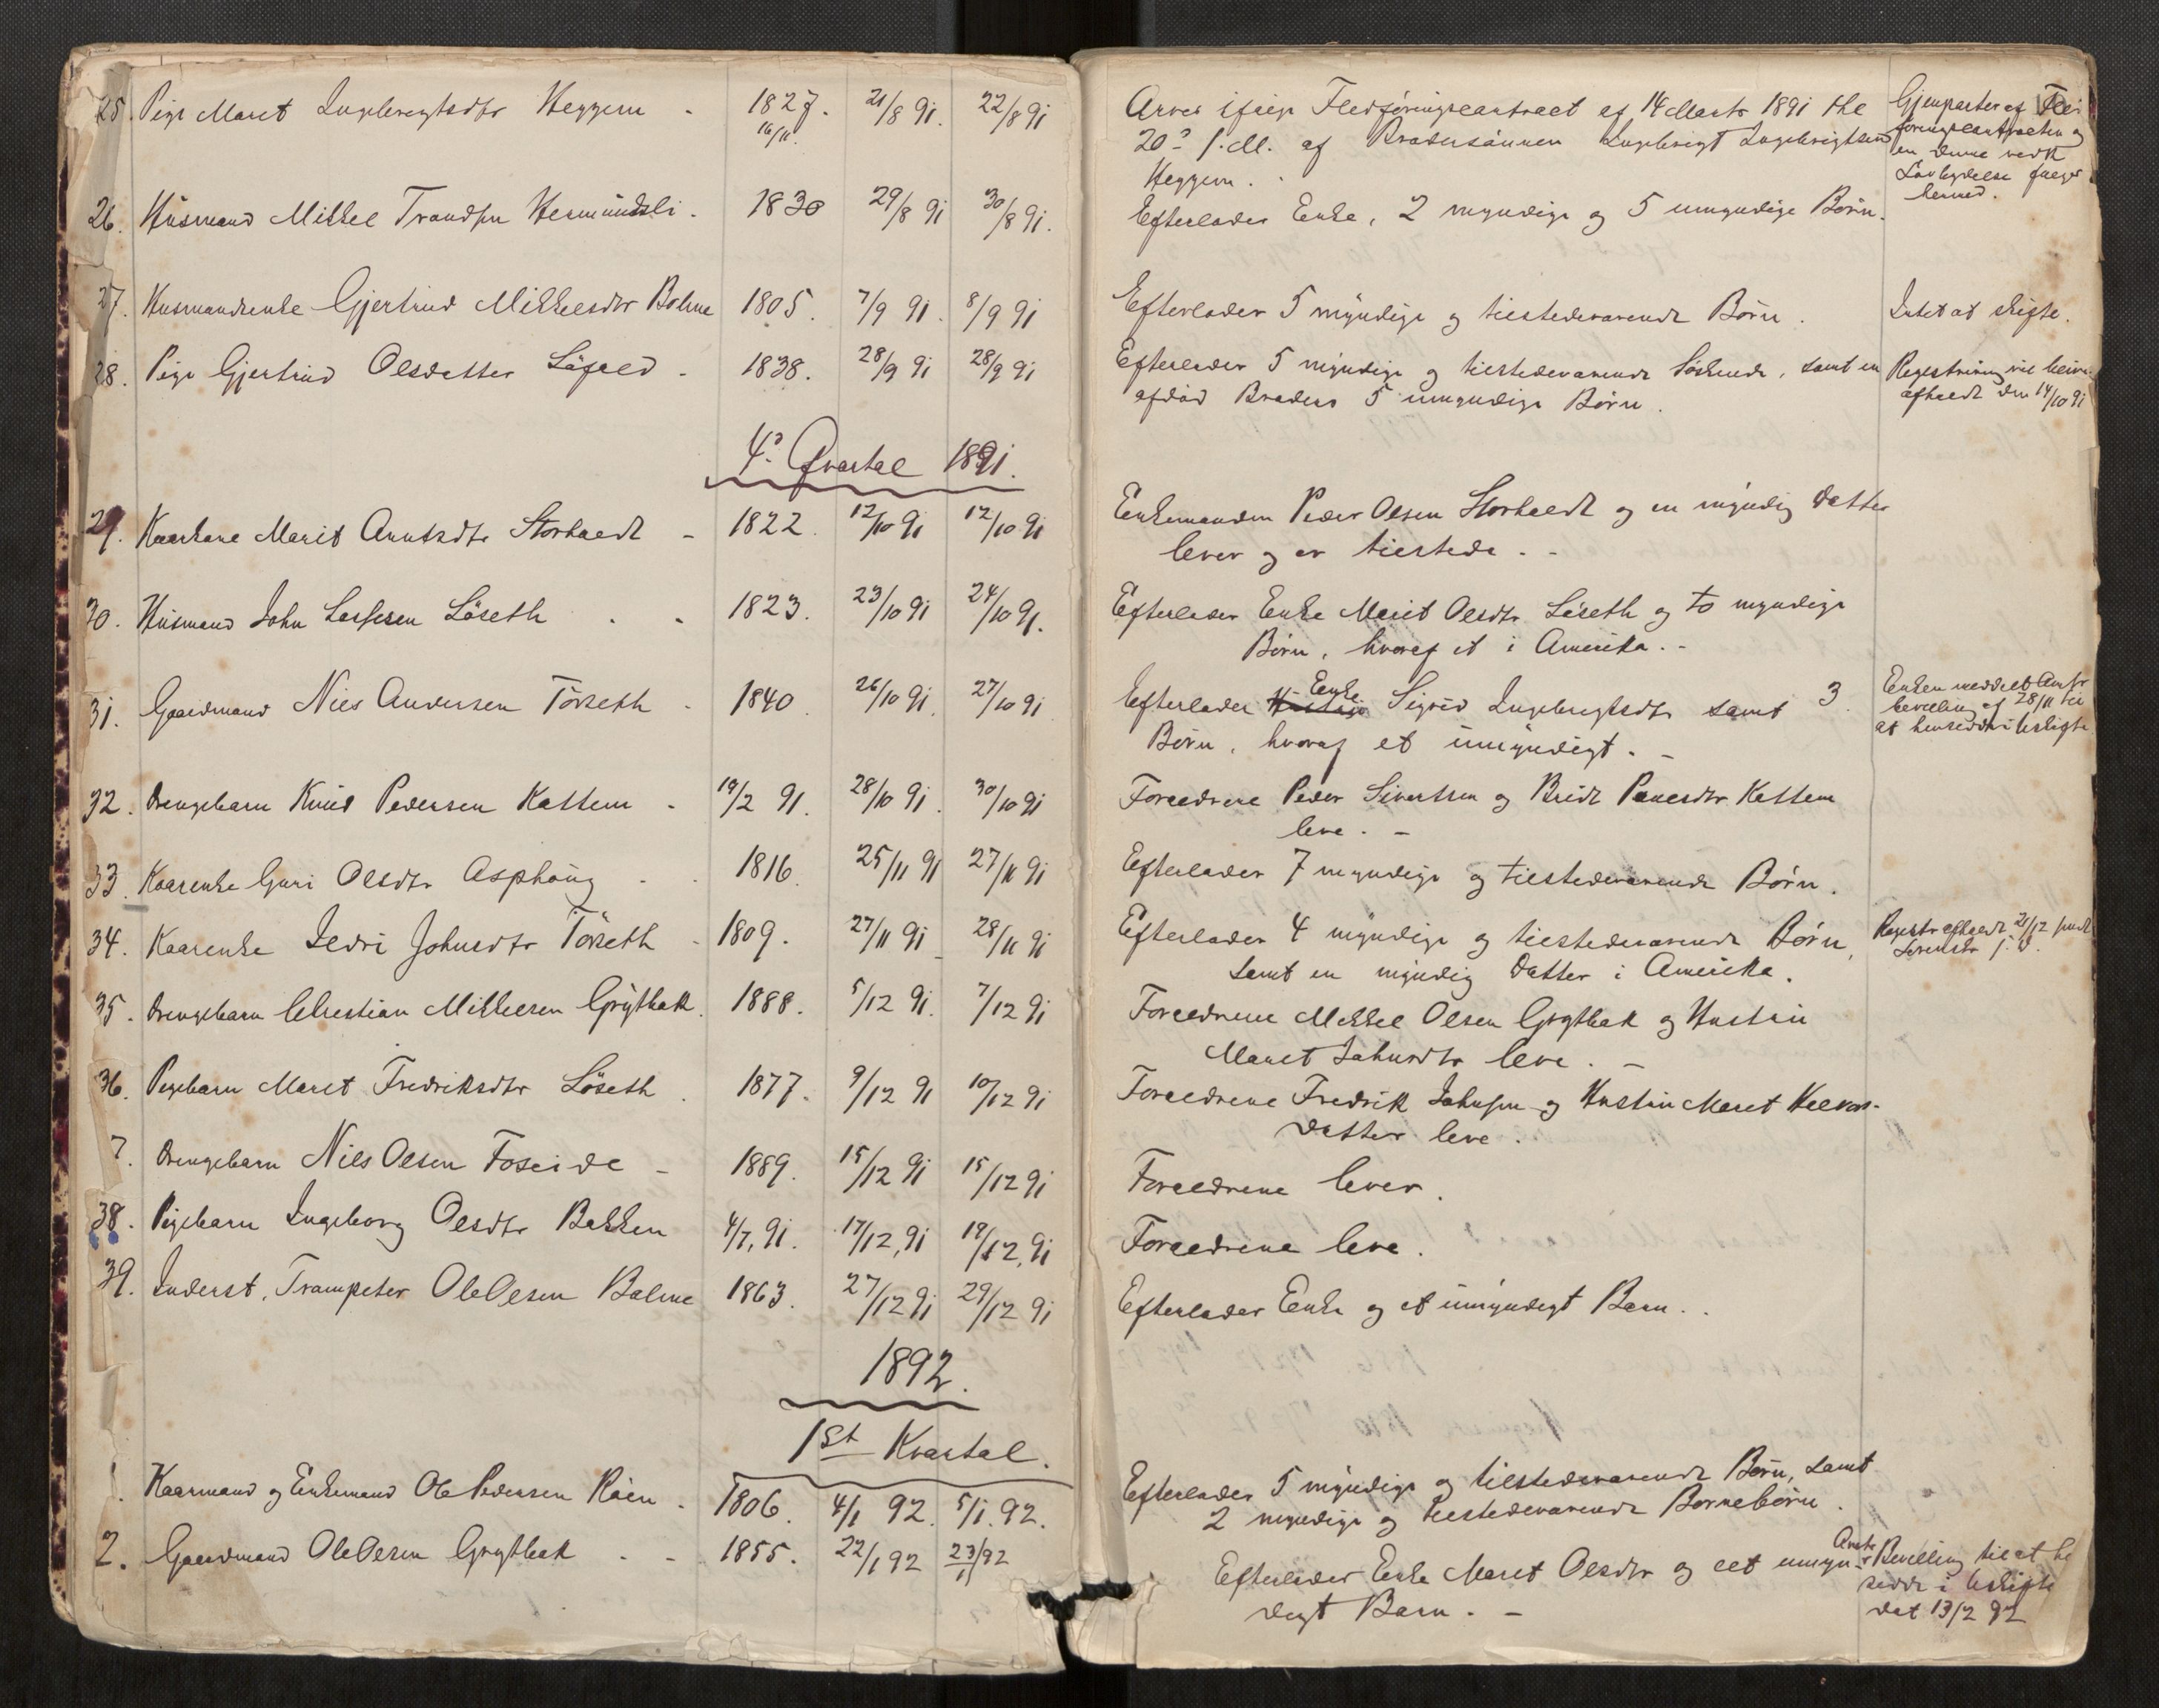 25. Pige Marit Ingebrigtsdtr Heggem - 1827. 21/8 91. 22/8 91
16/11.
26. Husmand Mikkel Trondsen Hermundsli. 1830 29/8 91 30/8 91.
27. Husmandsenke Gjertrud Mikkelsdtr Bolme 1805. 7/9 91. 8/9 91
28. Pige Gjertrud Olsdatter Löfald. 1838. 28/9 91 28/9 91
4de Qvartal 1891.
29. Kaarkone Marit Arntsdtr Storholdt - 1822. 12/10 91 12/10 91
30. Husmand John Larssen Löseth . . 1823. 23/10 91 24/10 91.
31. Gaardmand Nils Andersen Törseth - 1840 26/10 91. 27/10 91
32. Drengebarn Knud Pedersen Kattem - 19/2 91. 28/10 91. 30/10 91
33. Kaarenke Guri Olsdtr Asphoug - . 1816. 25/11 91 27/11 91
34. Kaarenke Sedri Johnsdtr Törseth - 1809. 27/11 91 28/11 91
35. Drengebarn Christian Mikkelsen Grytbak. 1888. 5/12 91. 7/12 91
36. Pigebarn Marit Fredriksdtr Löseth . 1877. 9/12 91 10/12 91
7. Drengebarn Nils Olsen Foseide - 1889. 15/12 91 15/12 91
38. Pigebarn Ingeborg Olsdtr Bakken 4/7, 91. 17/12, 91 19/12, 91
39. Inderst, Trompeter Ole Olsen Bolme 1863. 27/12 91 29/12 91
1892.
1st Kvartal.
1. Kaarmand og Enkemand Ole Pedersen Röen. 1806. 4/1 92. 5/1. 92.
2. Gaardmand Ole Olsen Grytbak . - 1855. 22/1 92 23/1 92
Arves ifølge Fledføringscontract af 14 Marts 1891 thl
20de s. M. af Brodersønnen Ingebrigt Ingebrigtsen
Heggem. .
Efterlader Enke, 2 myndige og 5 umyndige Børn.
Efterlader 5 myndige og tilstedeværende Børn.
Efterlader 5 myndige og tilstedeværende Søskende, samt en
afdød Broders 5 umyndige Børn.
Enkemanden Peder Olsen Storholdt og en myndig Datter
lever og er tilstede. -
Efterlader Enke Marit Olsdtr Löseth og to myndige
Børn, hvoraf et i Amerika. -
Efterlader Enke Sigrid Ingebrigtsdtr samt 3
Børn, hvoraf et umyndigt. -
Forældrene Peder Sivertsen og Bridt Kattem
leve. -
Efterlader 7 myndige og tilstedeværende Børn.
Efterlader 4 myndige og tilstedeværende Børn,
samt en myndig Datter i Amerika.
Forældrene Mikkel Olsen Grytbak og Hustru
Marit Johnsdtr leve. -
Forældrene Fredrik Johnsen og Hustru Marit Halvors-
datter leve.
Forældrene lever.
Forældrene leve.
Efterlader Enke og et umyndigt Barn. .
Efterlader 5 myndige og tilstedeværende Børn, samt
2 myndige og tilstedeværende Børnebørn.
Efterlader Enke Marit Olsdtr og eet umyn-
digt Barn. -
Gjenparter af Fled-
føringscontracten og
en denne vedk.
Lovlydelse følger
herned.
Intet at skifte.
Registrering vil blive
afholdt den 14/10 91
Enken meddelt Amts-
bevilling af 28/11 til
at hensidde i Uskifte
Registr afholdt 21/12 fundt
Amts Bevilling til at he
sidde i Uskifte
dat 13/2 92